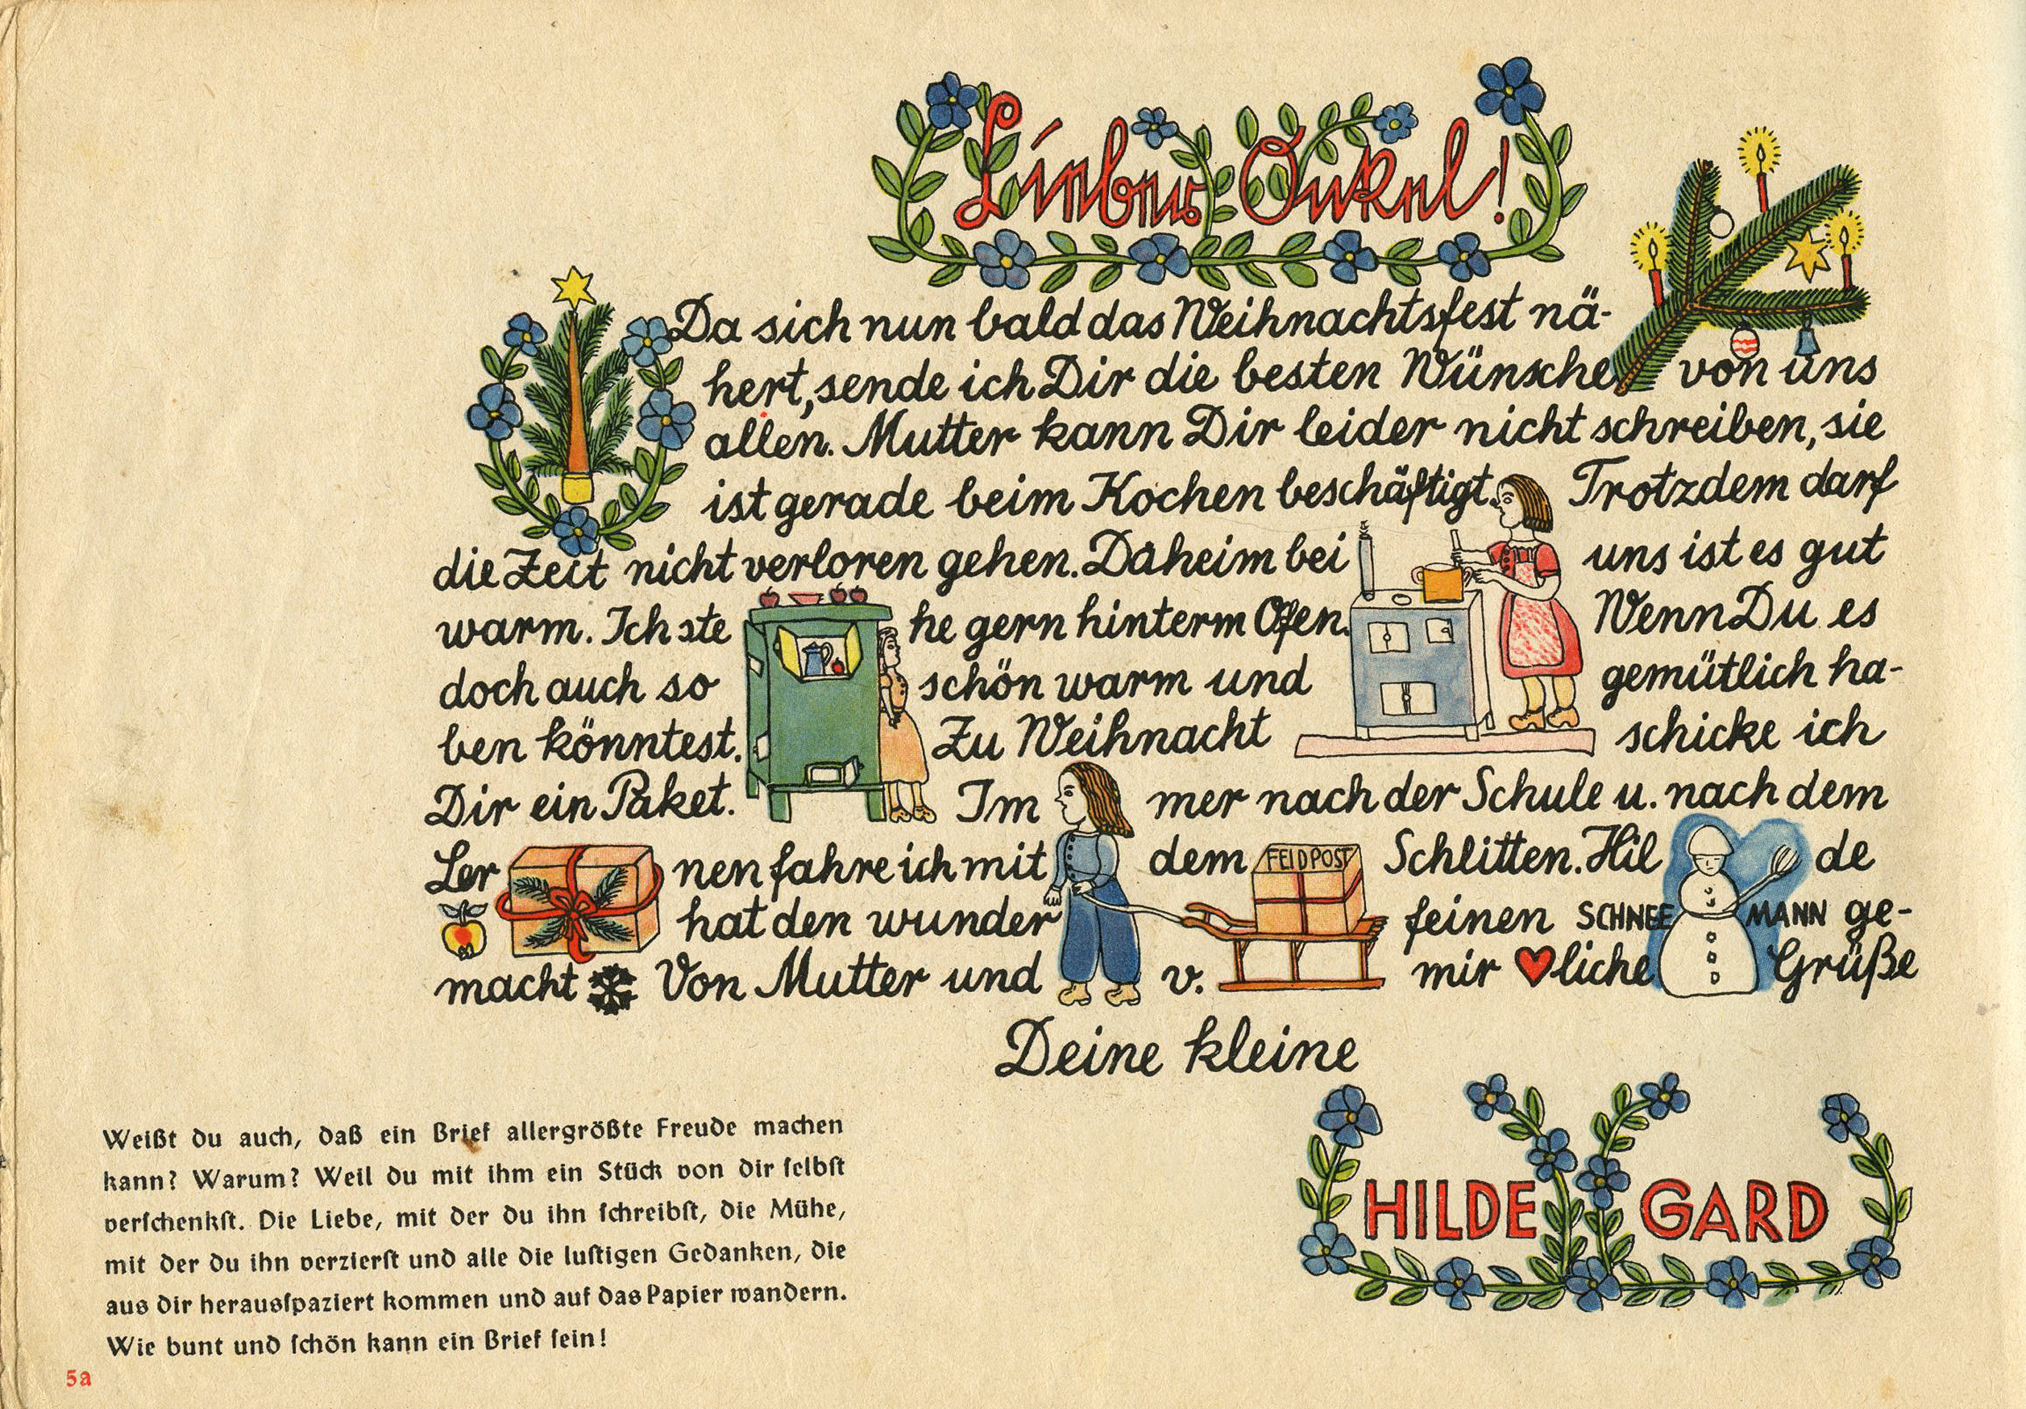 Lieber Onkel!
Da sich nun bald das Weihnachtsfest nä-
hert, sende ich Dir die besten Wünsche von uns
allen. Mutter kann Dir leider nicht schreiben, sie
ist gerade beim Kochen beschäftigt. Trotzdem darf
die Zeit nicht verloren gehen. Daheim bei uns ist es gut
warm. Ich ste he gern hinterm Ofen. Wenn Du es
doch auch so schön warm und gemütlich ha-
ben könntest. Zu Weihnacht schicke ich
Dir ein Paket. Im mer nach der Schule u. nach dem
Ler nen fahre ich mit dem FELDPOST Schlitten. Hil de
hat den wunder feinen SCHNEE MANN ge-
macht Von Mutter und v. mir ♥liche Grüße
Deine kleine
HILDE GARD
Weißt du auch, daß ein Brief allergrößte Freude machen
kann? Warum? Weil du mit ihm ein Stück von dir ſelbſt
verſchenkſt. Die Liebe, mit der du ihn ſchreibſt, die Mühe,
mit der du ihn verzierſt und alle die luſtigen Gedanken, die
aus dir herausſpaziert kommen und auf das Papier wandern.
Wie bunt und ſchön kann ein Brief ſein!
5a